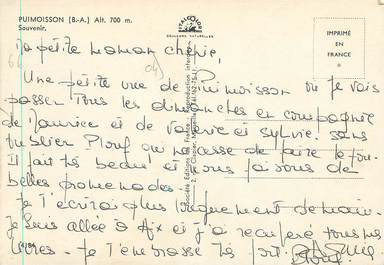 PUIMOISSON (B.-A.) Alt. 700 m.
Souvenir.
COULEURS NATURELLES
IMPRIMÉ
EN
FRANCE
Ma petite maman chérie,
Une petite vue de Puimoisson où je vais
passer tous les dimanches en compagnie
de Maurice et de Valérie et Sylvie. sans
oublier Plouf qui ne cesse de faire le fou.
Il fait très beau et nous faisons de
belles promenades.
Je t'écrirai plus longuement demain.
Je suis allée à Aix et j'ai récupéré tous mes
livres. Je t'embrasse très fort.
Société Éditions de France - Reproduction interdite